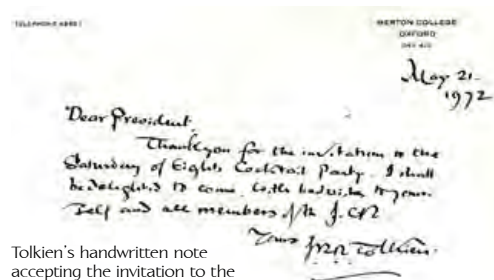 MERTON COLLEGE
OXFORD
May 21.
1972
Dear President.
Thank you for the invitation to the
Saturday of Eights Cocktail Party. I shall
be delighted to come. With best wishes to your-
self and all members of the J.CR
Yours JRR Tolkien.
Tolkien's handwritten note
accepting the invitation to the